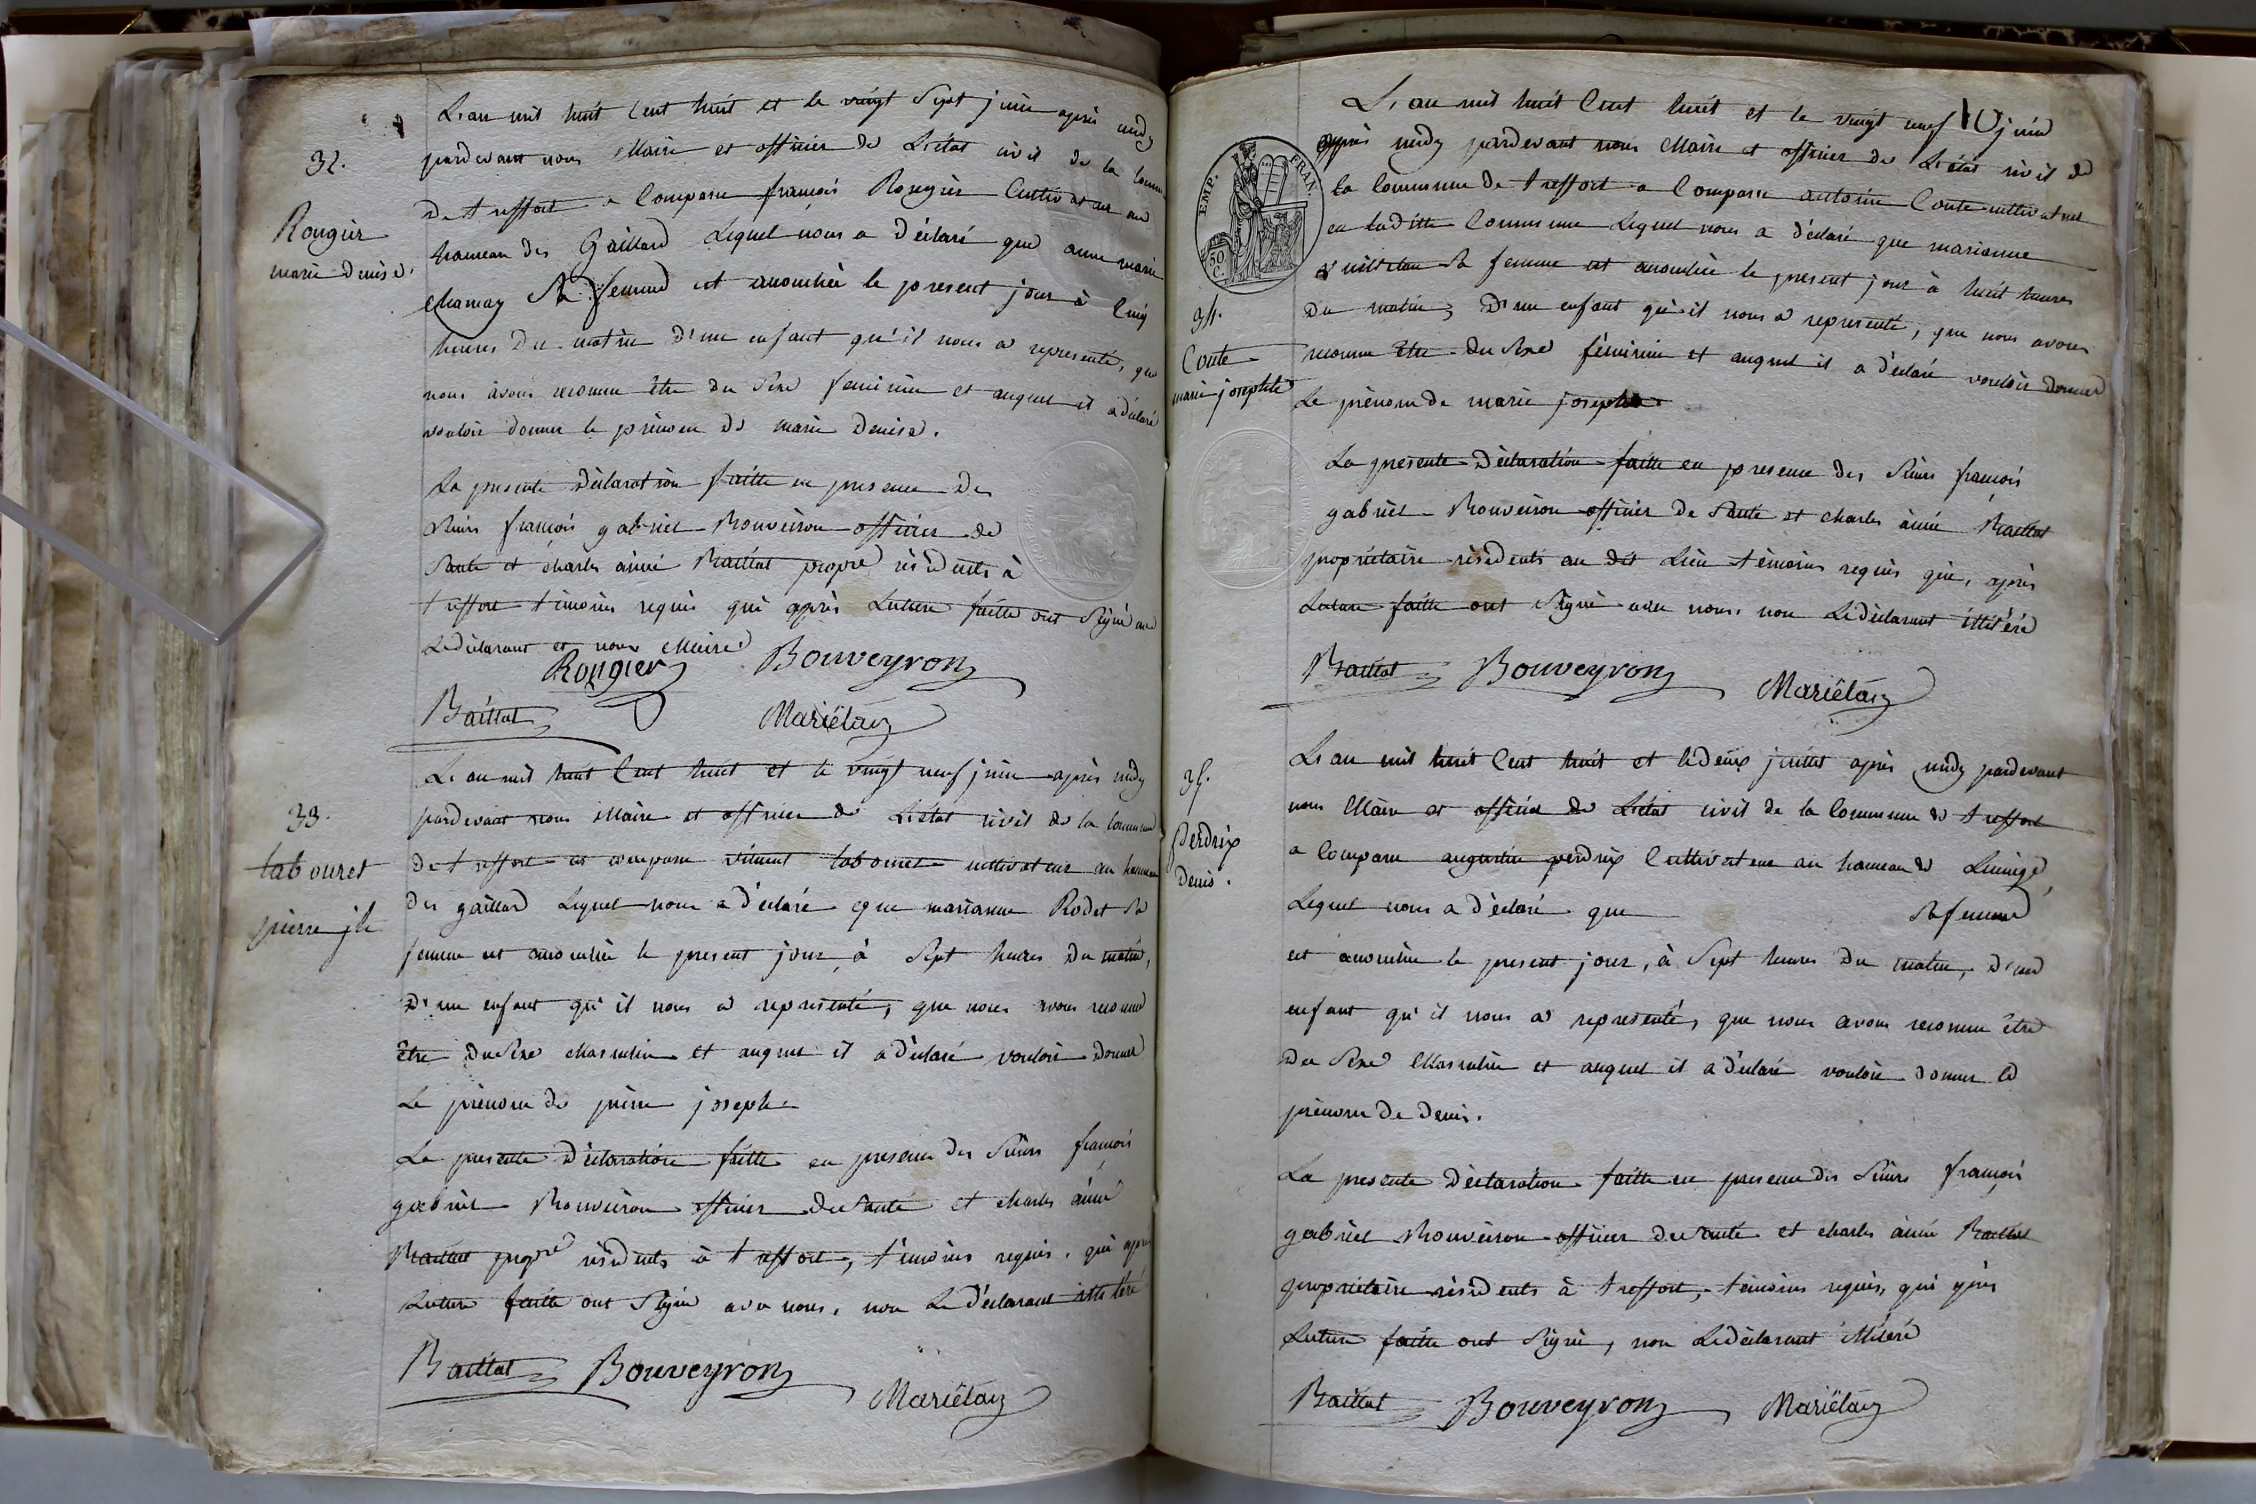 32.
Rougier
marie denise.
L'an mil huit Cent huit et le vingt Sept juin après midy
pardevant nous Maire et officier de L'état civil de la Commune
de treffort a Comparu françois Rougier Cultivateur au
hameau des Gaillard Lequel nous a déclaré que anne marie
Chamay Sa femme est accouchée le present jour à Cinq
heures du matin d'un enfant qu'il nous a representé, que
nous avons reconnu être du Sexe feminin et auquel il a déclaré
vouloir donner le prénom de marie denise.
La presente déclaration faitte en presence des
Sieurs françois gabriel Bouveiron officier de
Santé et charles aimé Baillat propre résidents à
treffort témoins requis qui après Lecture faitte ont Signé avec
Le déclarant et nous Maire
Rougier Bouveyron
Baillat Mariétan
33.
tabouret
pierre jh
L'an mil huit Cent huit et le vingt neuf juin après midy
pardevant nous Maire et officier de L'état civil de la Commune
de treffort a comparu tabouret cultivateur au hameau
des gaillard Lequel nous a déclaré que marianne Rodet Sa
femme est accouchée le present jour à Sept heures du matin,
d'un enfant qu'il nous a representé, que nous avons reconnu
être du Sexe Masculin et auquel il a déclaré vouloir donner
Le prénom de pierre joseph
La presente déclaration faitte en presence des Sieurs françois
gabriel Bouveiron officier de Santé et charles aimé
Baillat propre résidents à treffort, témoins requis, qui après
Lecture faitte ont Signé avec nous, non Le déclarant illitéré
Baillat Bouveyron
Mariétan
EMP. FRAN.
50 C.
34.
Conte
marie josephte
L'an mil huit Cent huit et le vingt neuf juin
après midy pardevant nous Maire et officier de L'état civil de
la Commune de treffort a Comparu antoine Conte cultivateur
en laditte Commune Lequel nous a déclaré que marianne
Sa femme est accouchée le present jour à huit heures
du matin, d'un enfant qu'il nous a representé, que nous avons
reconnu être du Sexe féminin et auquel il a déclaré vouloir donner
Le prénom de marie josephte
La presente déclaration faitte en presence des Sieurs françois
gabriel Bouveiron officier de Santé et charles aimé Baillat
propriétaire résidents au dit Lieu témoins requis qui, après
Lecture faitte ont Signé avec nous, non Le déclarant illitéré
Baillat Bouveyron Mariétan
35.
Perdrix
denis.
L'an mil huit Cent huit et le deux juillet après midy pardevant
nous Maire et officier de L'état civil de la Commune de treffort
a Comparu augustin perdrix Cultivateur au hameau de
Lequel nous a déclaré que Sa femme
est accouchée le present jour, à Sept heures du matin, d'un
enfant qu'il nous a representé, que nous avons reconnu être
du Sexe Masculin et auquel il a déclaré vouloir donner le
prénom de denis.
La presente déclaration faitte en presence des Sieurs françois
gabriel Bouveiron officier de Santé et charles aimé Baillat
propriétaire résidents à treffort, témoins requis, qui après
Lecture faitte ont Signé, non Le déclarant illitéré
Baillat Bouveyron Mariétan